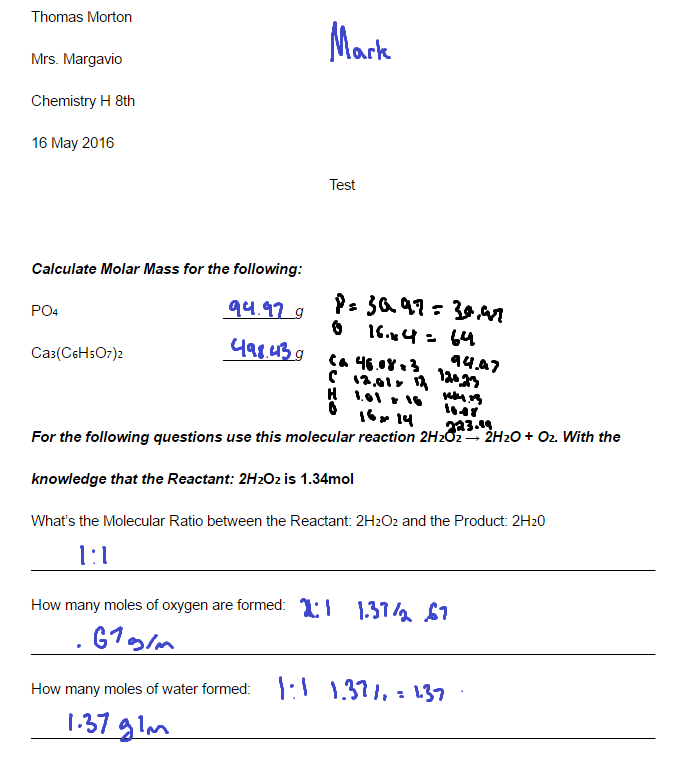 Thomas Morton
Mark
Mrs. Margavio
Chemistry H 8th
16 May 2016
Test
Calculate Molar Mass for the following:
PO4 94.97 g P = 30.97 = 30.97
O 16 x 4 = 64
94.97
Ca3(C6H5O7)2 498.43 g
C 12.01 x 12
H 1.01 x 10 10.08
O 16 x 14 223.99
For the following questions use this molecular reaction 2H2O2 → 2H2O + O2. With the
knowledge that the Reactant: 2H2O2 is 1.34mol
What's the Molecular Ratio between the Reactant: 2H2O2 and the Product: 2H20
1:1
How many moles of oxygen are formed: 2:1 1.37/2 .67
.67 g/m
How many moles of water formed: 1:1 1.37/1 = 1.37
1.37 g/m